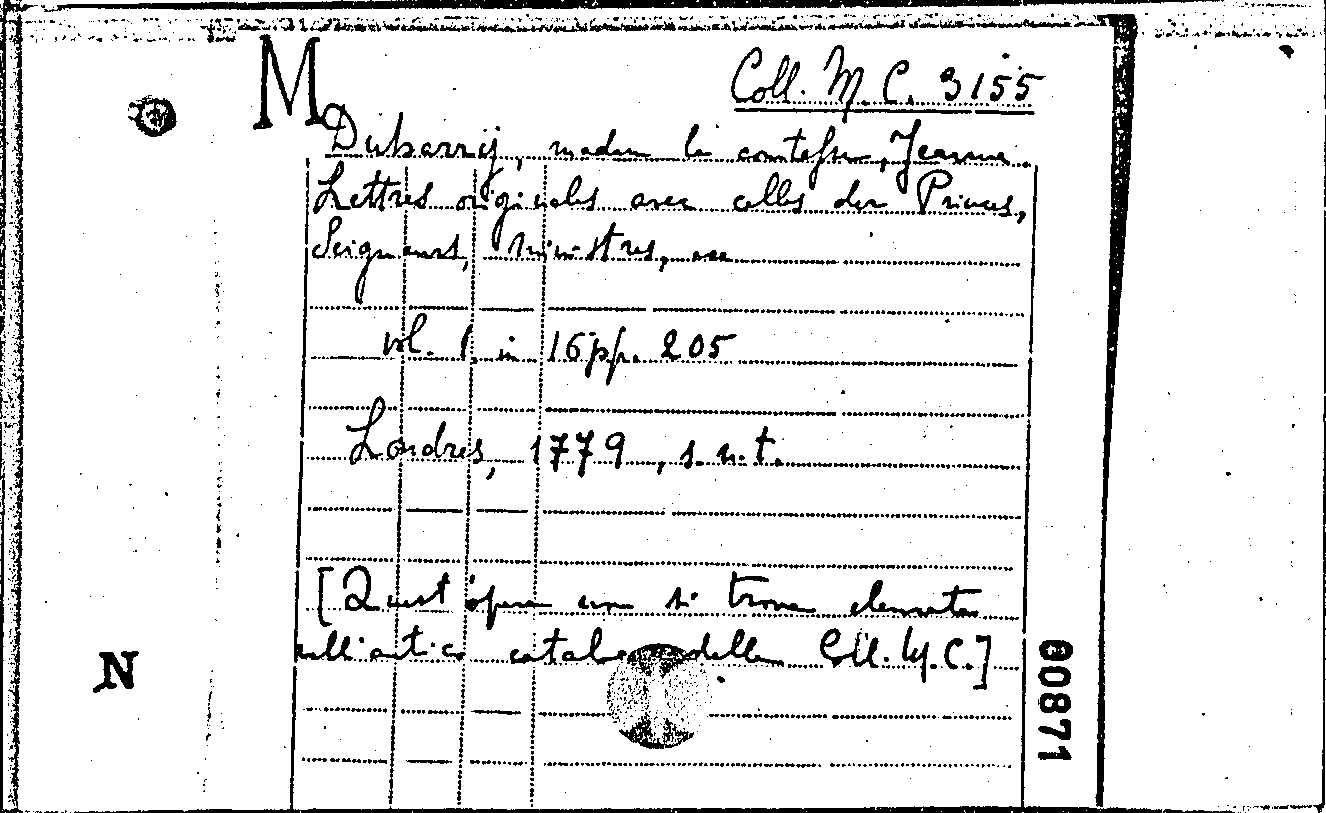 M
Coll. M. C. 3155
Dubarry, madame la comtesse, Jeanne.
Lettres originales avec celles des Princes,
Seigneurs, Ministres,
vol. 1 in 16 pp. 205
Londres, 1779, s.n.t.
[Quest'opera non si trova elencata
nell'antico catalogo della Coll. M.C.]
N
00871